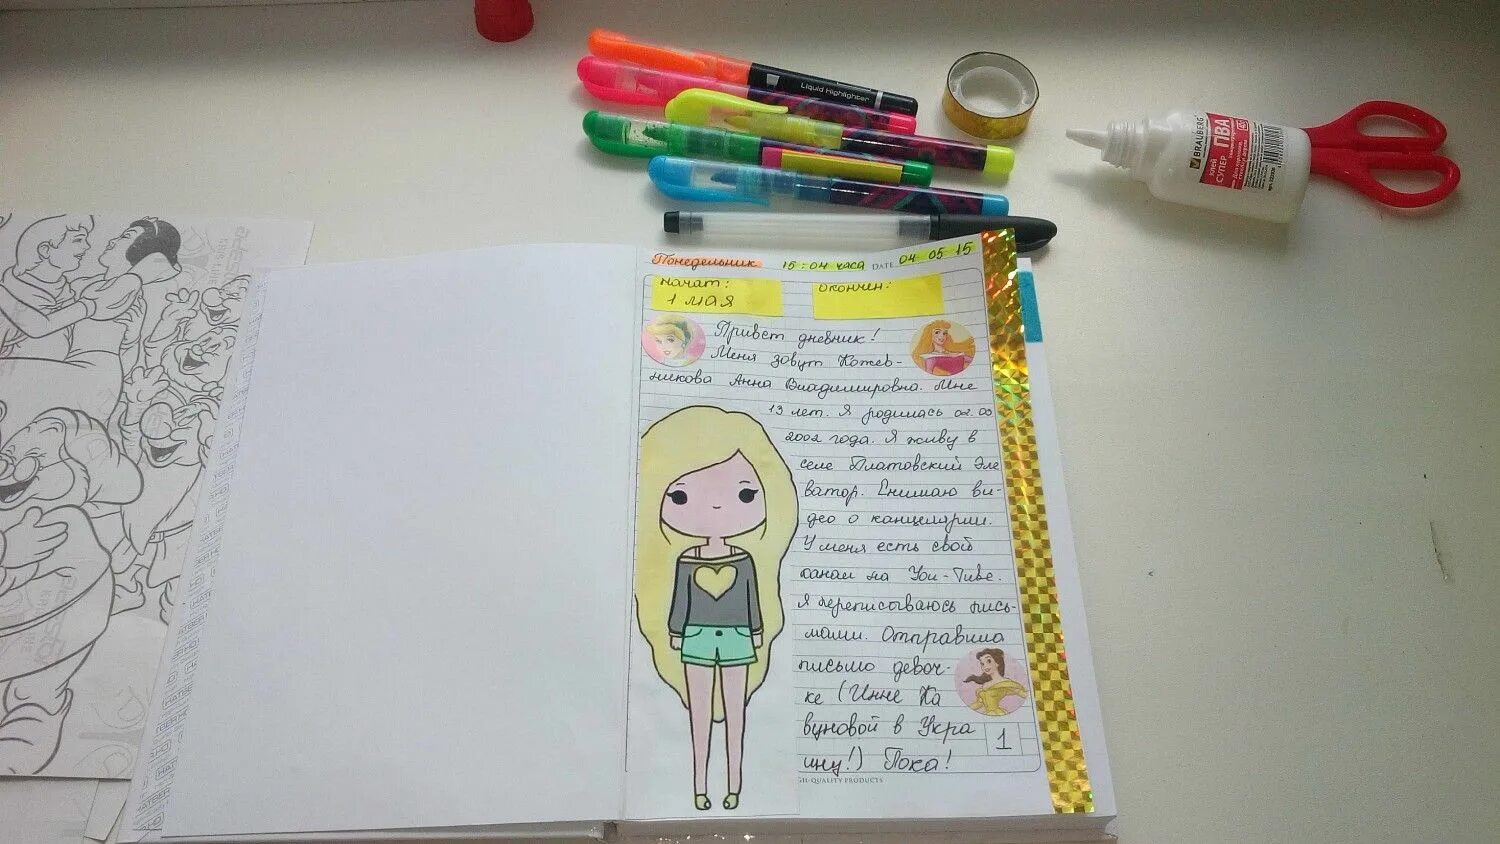 Liquid Highlighter
BRAUBERG
КЛЕЙ
СУПЕР
ПВА
Понедельник 15:04 часа DATE 04 05 15
начат:
1 мая
окончен:
Привет дневник!
Меня зовут Кожев-
никова Анна Владимировна. Мне
13 лет. Я родилась
2002 года. Я живу в
селе Платовский Эле
ватор. Снимаю ви-
део о канцелярии.
У меня есть свой
канал на You-Tube.
Я переписываюсь пись-
мами. Отправила
письмо девоч-
ке (Инне Ка
вуновой в Укра
ину!) Пока!
1
GH-QUALITY PRODUCTS